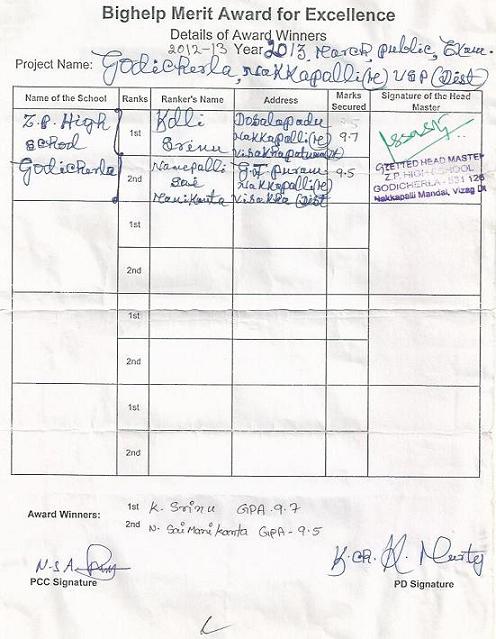 Bighelp Merit Award for Excellence
Details of Award Winners
2012-13 Year 2013, March, public, Exam.
Project Name: Godicherla, Nakkapalli(M) VSP (Dist)
Name of the School Ranks Ranker's Name Address Marks Secured Signature of the Head Master
Z.P. High School Godicherla
1st Kolli Srinu Dosalapadu Nakkapalli(M) Visakhapatnam(Dt) 9.7
2nd Nanepalli Sai Manikanta G.J. Puram Nakkapalli(M) Visakha (Dist 9.5
GZETTED HEAD MASTER
Z.P. HIGH SCHOOL
GODICHERLA - 531 126
Nakkapalli Mandal, Vizag Dt
1st
2nd
1st
2nd
1st
2nd
Award Winners: 1st K. Srinu GPA-9.7
2nd N. Sai Manikanta GPA-9.5
N.S.A
K.Ch. Murty
PCC Signature PD Signature